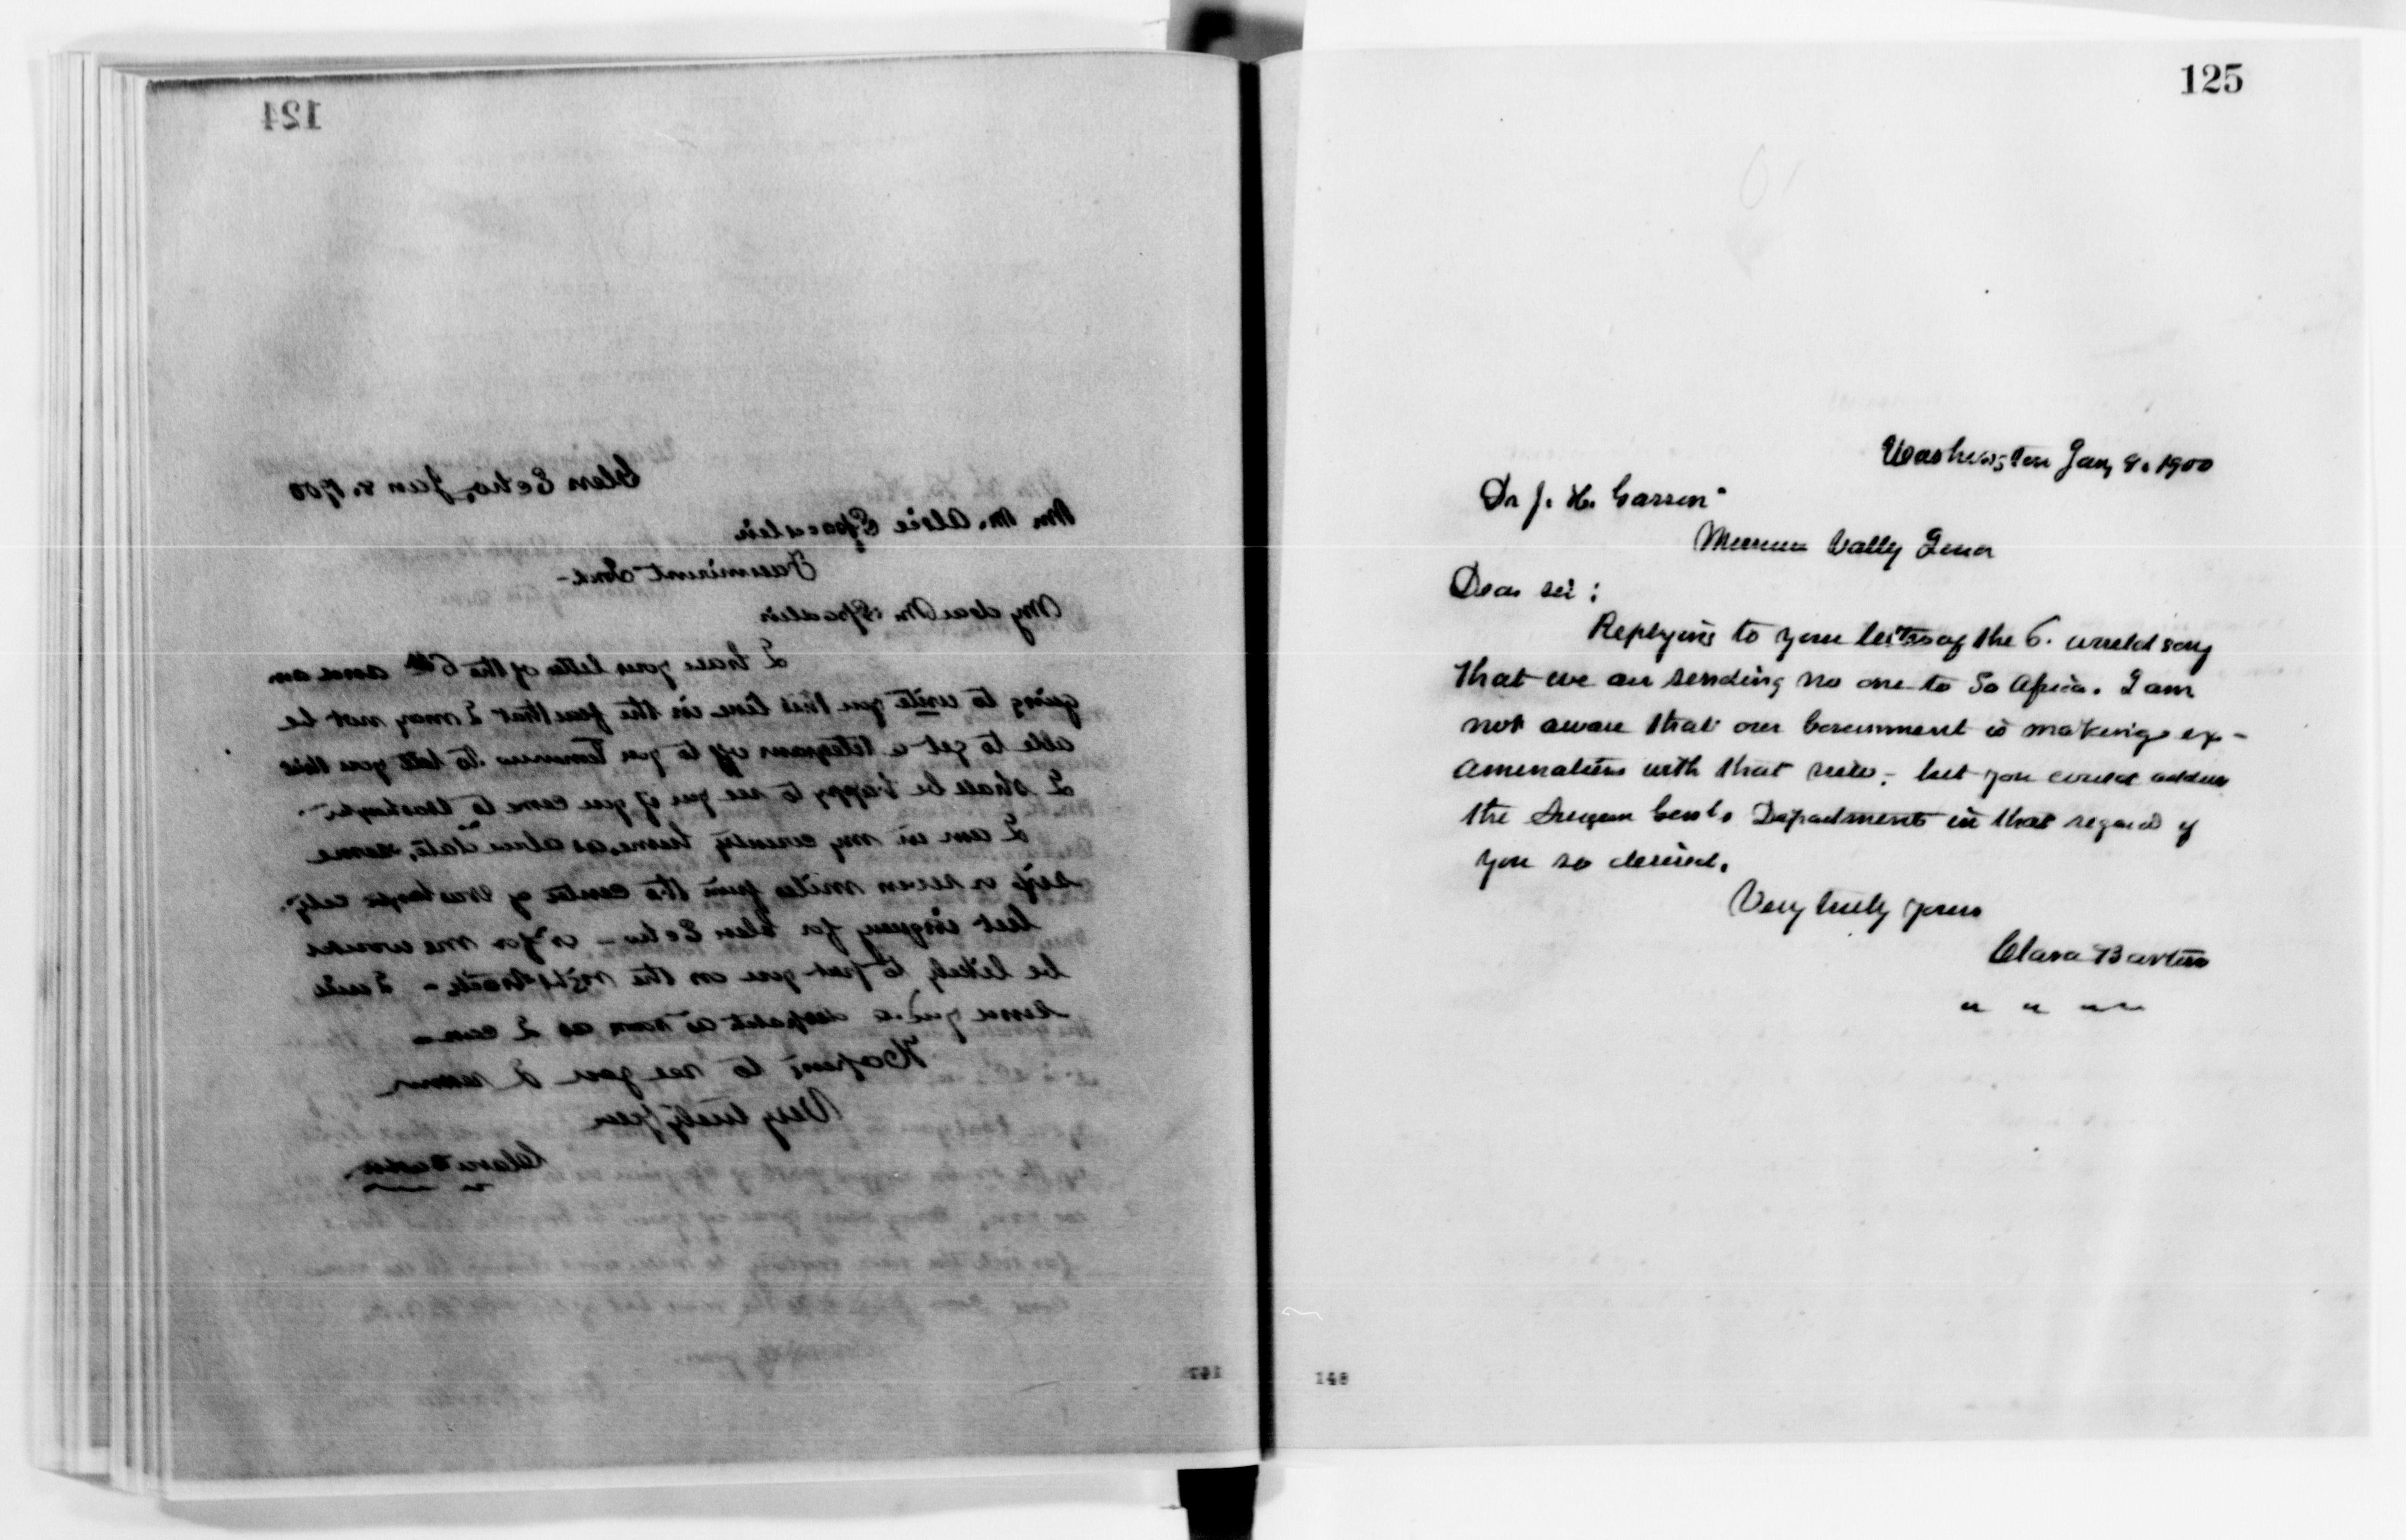 124
Glen Echo, Jan 8. 1900
My dear Mr.
I have your letter of the 6th and am
going to write you this line in the fear that I may not be
able to get a telegram off to you tomorrow to tell you this
I shall be happy to see you if you come to
I am in my country home, as above date, some
six or seven miles from the center of
but for Glen Echo – or for me would
be likely to put you on the right track – I will
send you a despatch as soon as I can –
Hoping to see you I remain
Very truly yours
Clara Barton
147
125
Washington Jany 8. 1900
Dr J. H.
Vally Iowa
Dear sir;
Replying to your letter of the 6. would say
that we are sending no one to So Africa. I am
not aware that our Government is making ex-
aminations with that view; but you could address
the Surgeon Genl. Department in that regard if
you so desired.
Very truly yours
Clara Barton
148